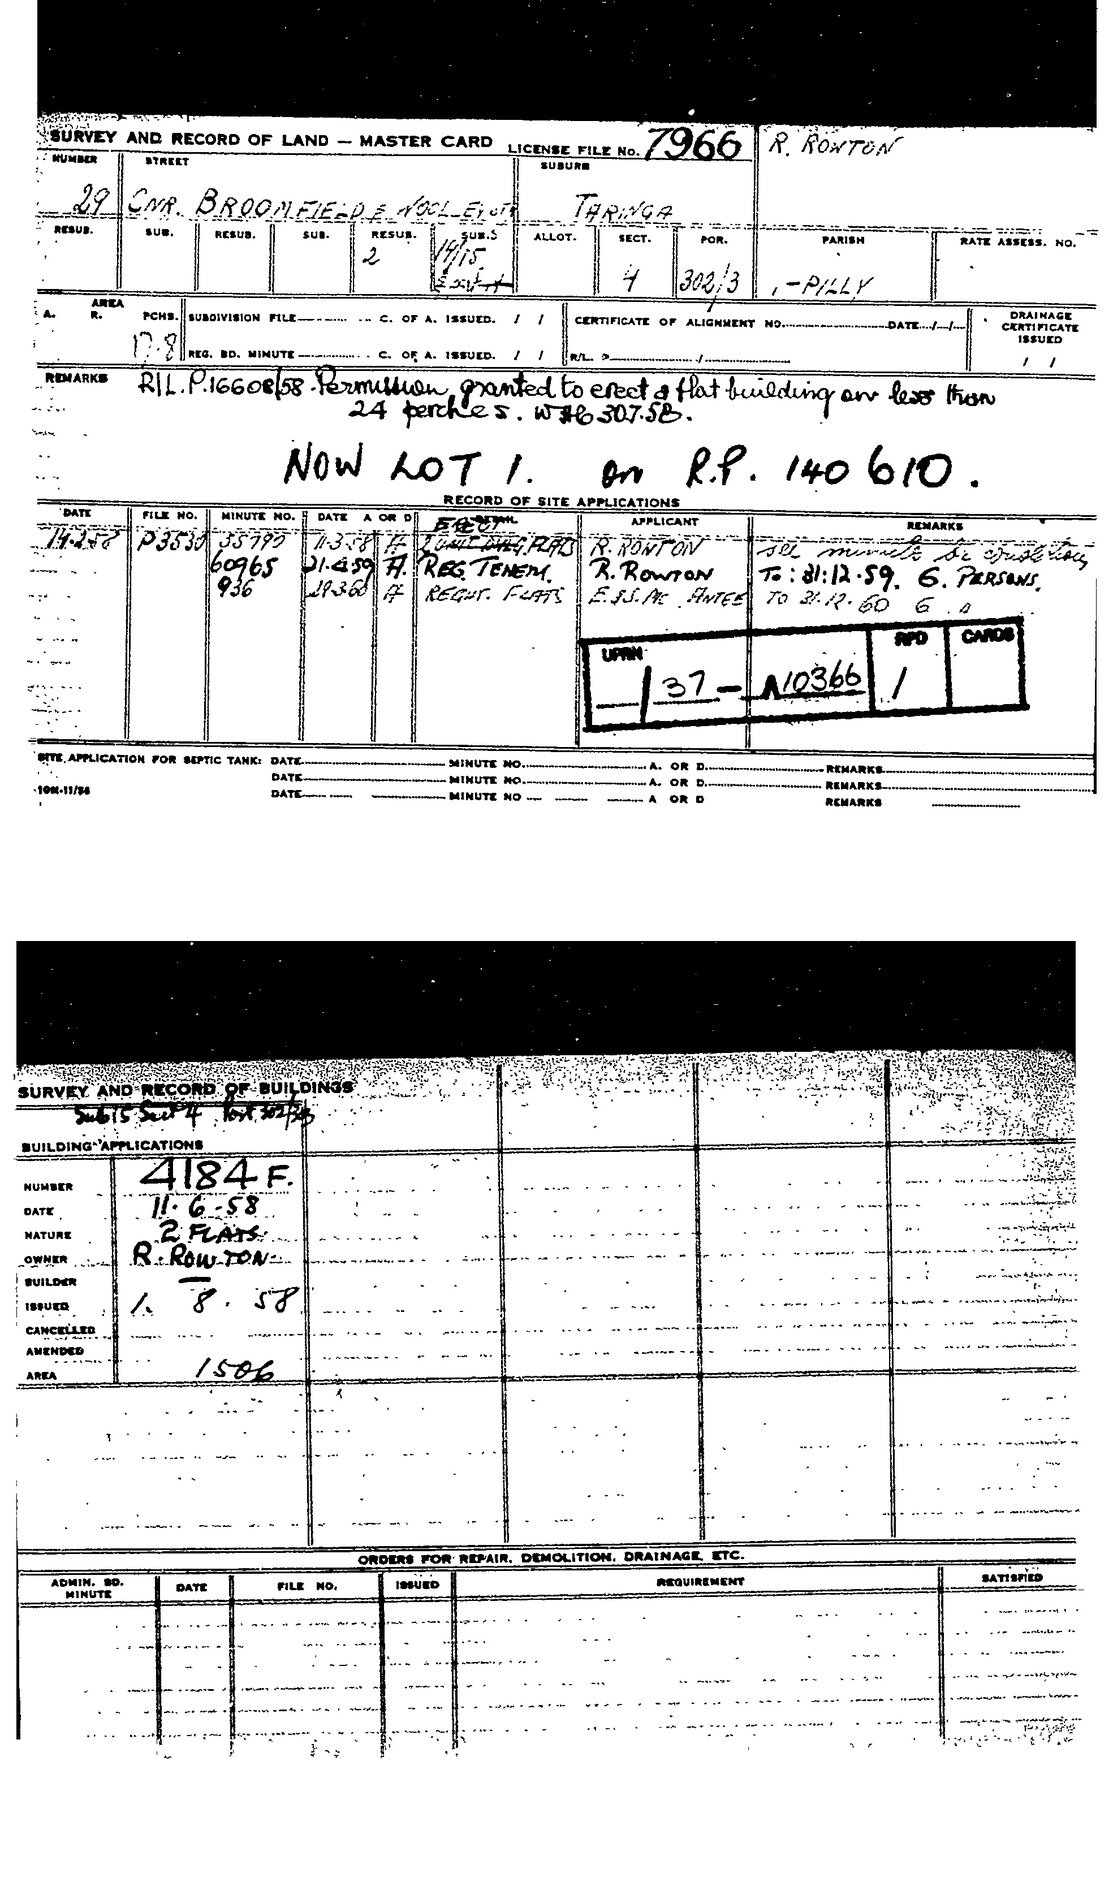 SURVEY AND RECORD OF LAND — MASTER CARD LICENSE FILE No. 7966 R. ROWTON
NUMBER STREET SUBURB
29 CNR. BROOMFIELD & TARINGA
RESUB. SUB. RESUB. SUB. RESUB. SUB.S ALLOT. SECT. POR. PARISH RATE ASSESS. NO.
2 14/15 4 302/3 -PILLY
AREA
A. R. PCHS. SUBDIVISION FILE C. OF A. ISSUED. / / CERTIFICATE OF ALIGNMENT NO. DATE / / DRAINAGE CERTIFICATE ISSUED
17.8 REG. BD. MINUTE C. OF A. ISSUED. / / R/L. P / / /
REMARKS R/L.P.16608/58. Permission granted to erect a flat building on less than
24 perches. 307.58.
NOW LOT 1. on R.P. 140610.
RECORD OF SITE APPLICATIONS
DATE FILE NO. MINUTE NO. DATE A OR D DETAIL APPLICANT REMARKS
14.2.58 P3530 35797 11.3.58 A FLATS R. ROWTON see minute
60965 21.4.59 A. REG. TENEM. R. ROWTON To: 31:12.59. 6. PERSONS.
936 19.3.60 A REGUT. FLATS TO 31.12.60 6 "
UPRN RPD CARDS
/ 37 — 10366 /
SITE APPLICATION FOR SEPTIC TANK: DATE MINUTE NO. A. OR D. REMARKS
DATE MINUTE NO. A. OR D. REMARKS
10M-11/56 DATE MINUTE NO A OR D REMARKS
SURVEY AND RECORD OF BUILDINGS
Sub 15 Sect 4 Port. 302/303
BUILDING APPLICATIONS
NUMBER 4184 F.
DATE 11.6.58
NATURE 2 FLATS.
OWNER R. ROWTON
BUILDER —
ISSUED 1. 8. 58
CANCELLED
AMENDED
AREA 1506
ORDERS FOR REPAIR, DEMOLITION, DRAINAGE, ETC.
ADMIN. BD. MINUTE DATE FILE NO. ISSUED REQUIREMENT SATISFIED